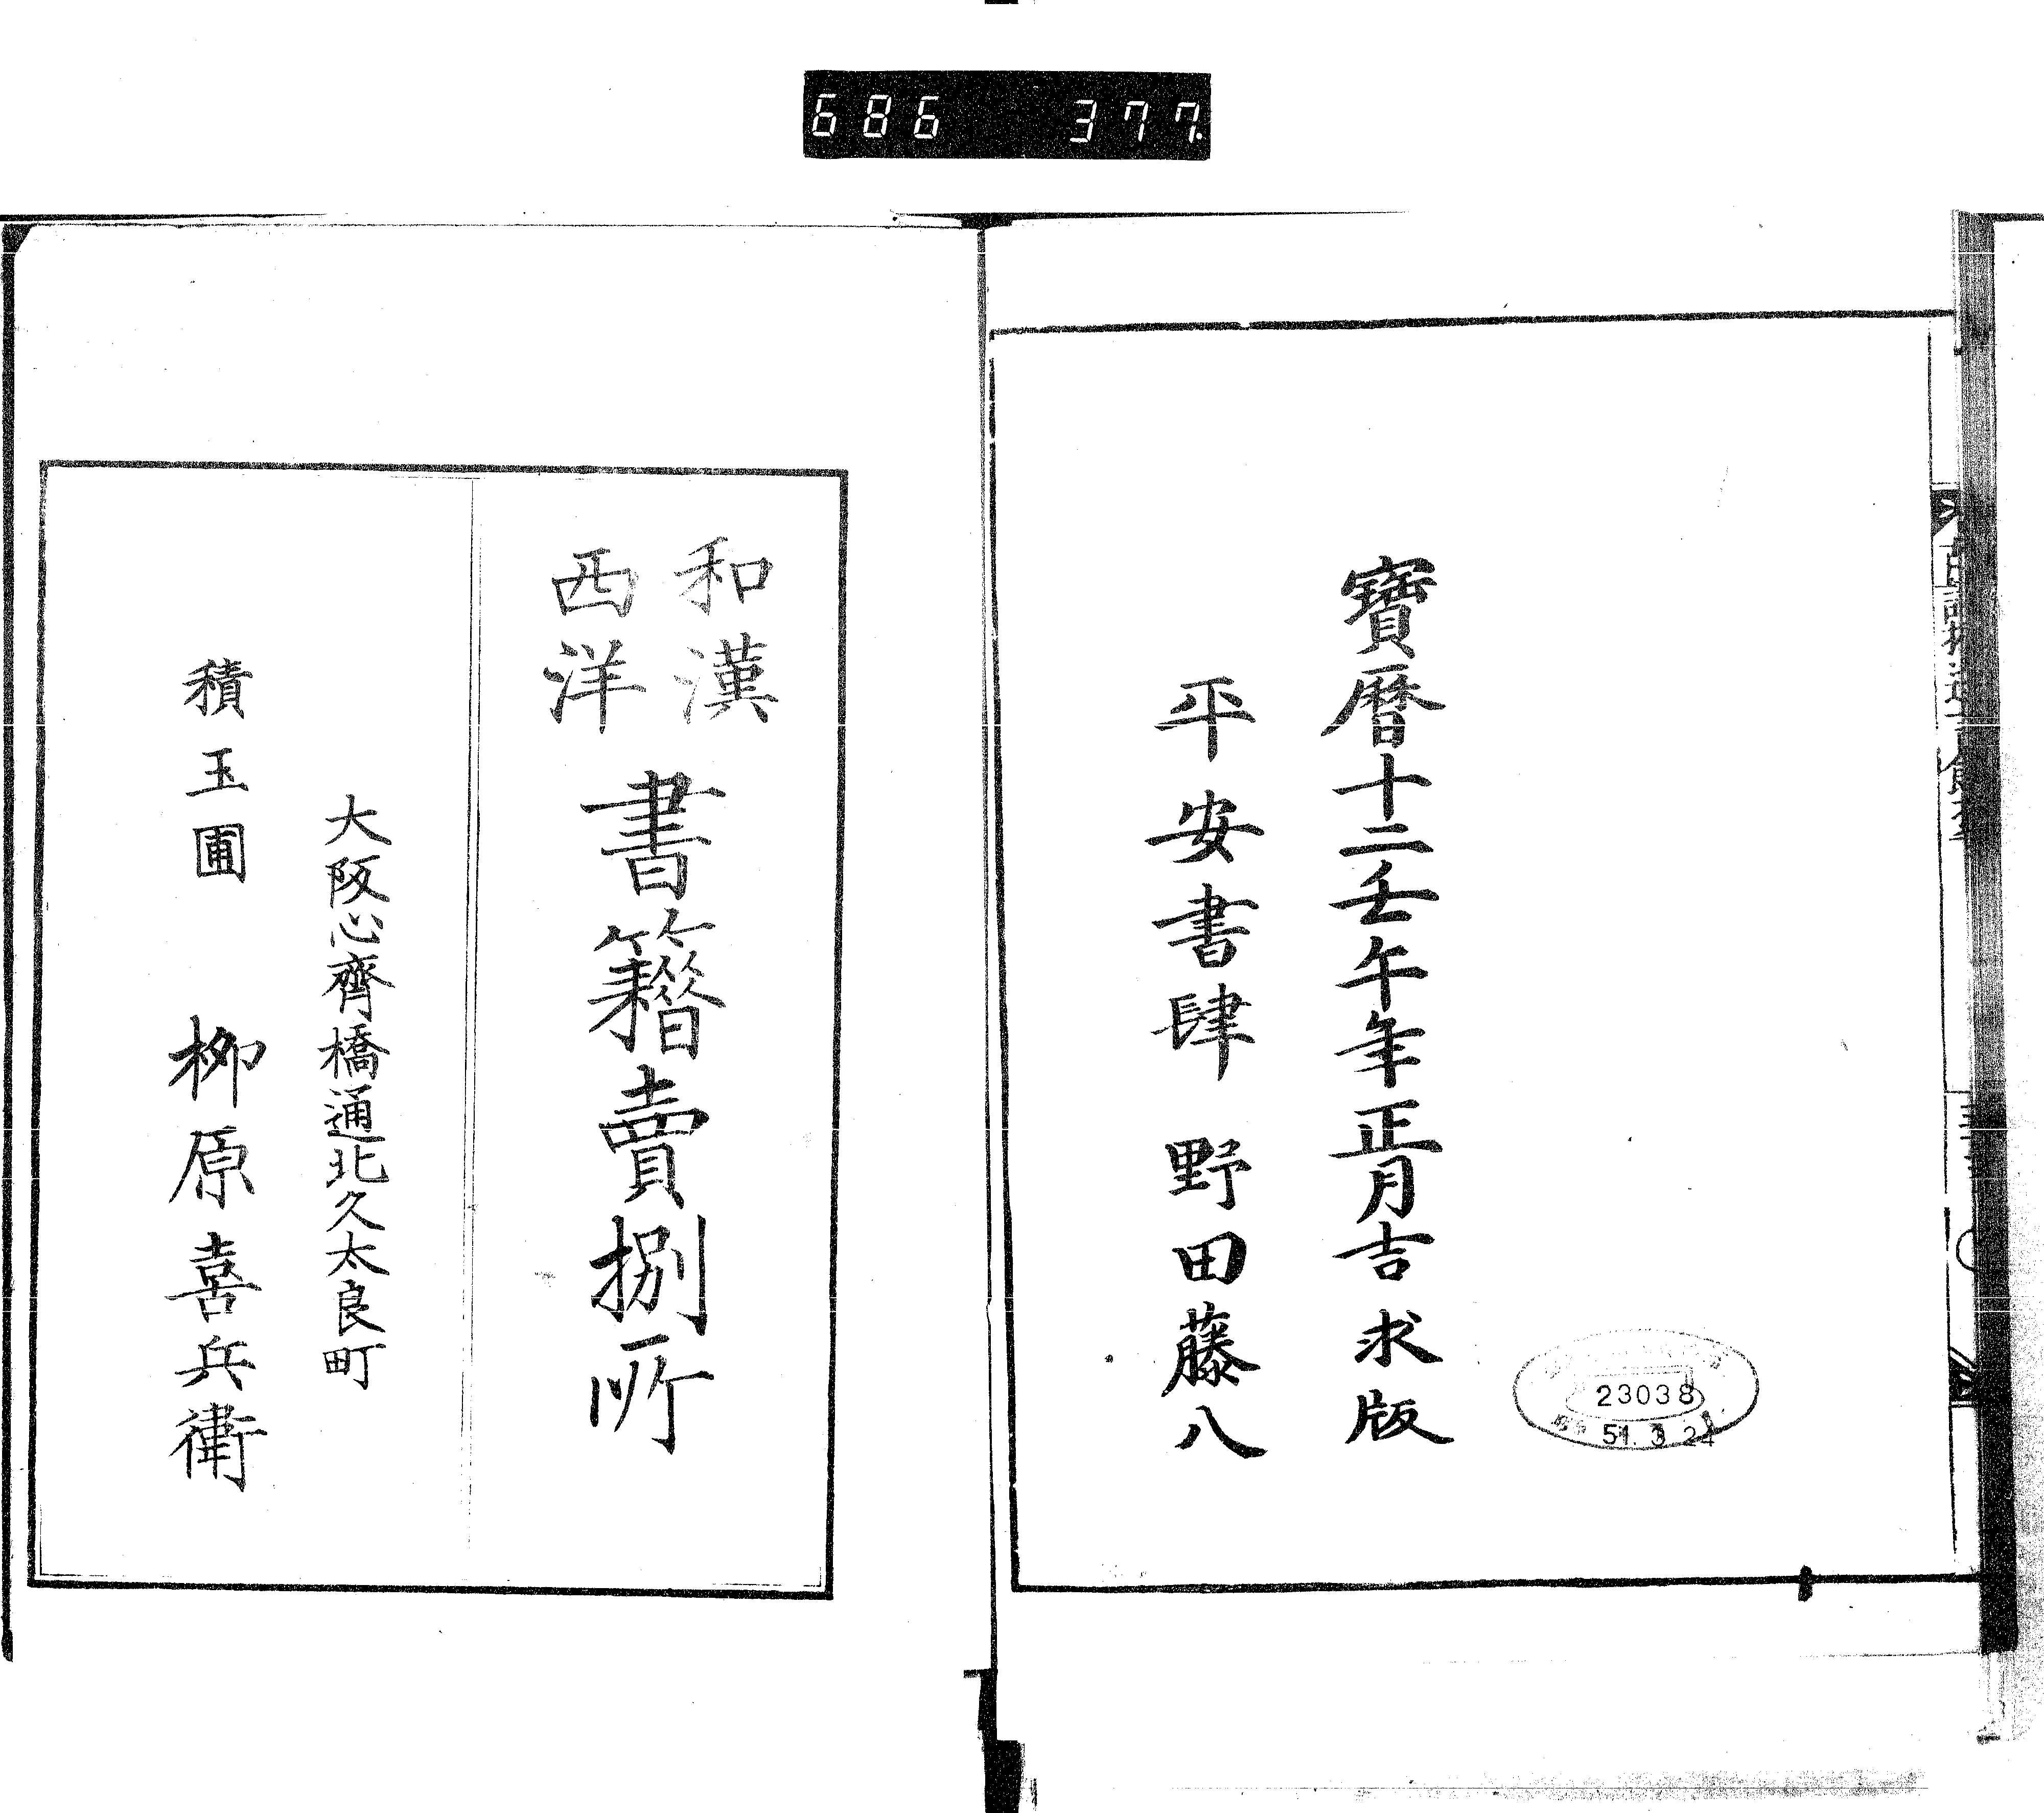 686 377
寶曆十二壬午年正月吉求版
平安書肆 野田藤八
23038
51. 3. 24
和漢
西洋
書籍賣捌所
大阪心齊橋通北久太良町
積玉圃 栁原喜兵衛